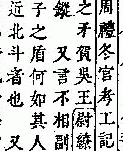 周禮冬官考工記
之矛賀吳王尉繚
鏦 又言不相副
子之盾何如其人
近北斗者也 又